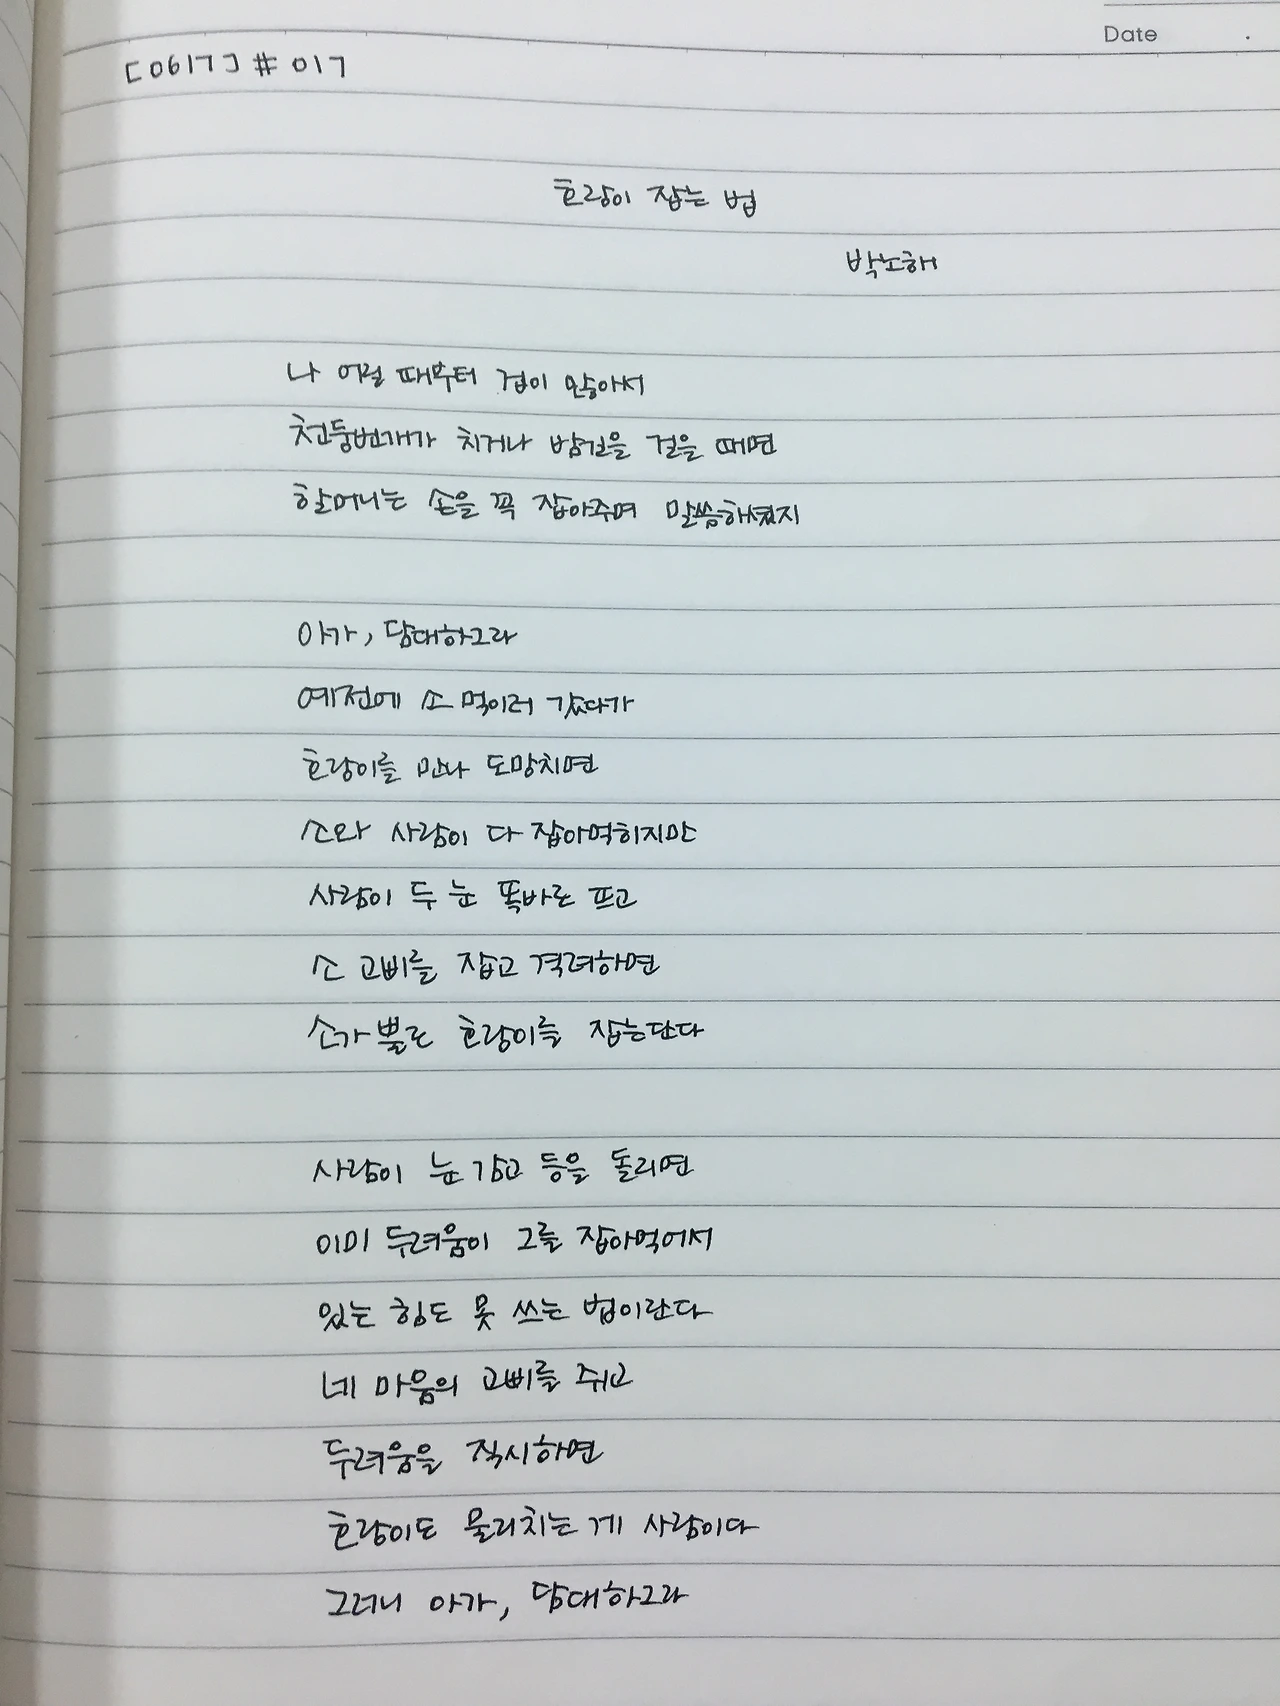 Date .
[0617] # 017
호랑이 잡는 법
박노해
나 어릴 때부터 겁이 많아서
천둥번개가 치거나 밤길을 걸을 때면
할머니는 손을 꼭 잡아주며 말씀하셨지
아가, 담대하그라
예전에 소 먹이러 갔다가
호랑이를 만나 도망치면
소와 사람이 다 잡아먹히지만
사람이 두 눈 똑바로 뜨고
소 고삐를 잡고 격려하면
소가 뿔로 호랑이를 잡는단다
사람이 눈 감고 등을 돌리면
이미 두려움이 그를 잡아먹어서
있는 힘도 못 쓰는 법이란다
네 마음의 고삐를 쥐고
두려움을 직시하면
호랑이도 물리치는 게 사람이다
그러니 아가, 담대하그라